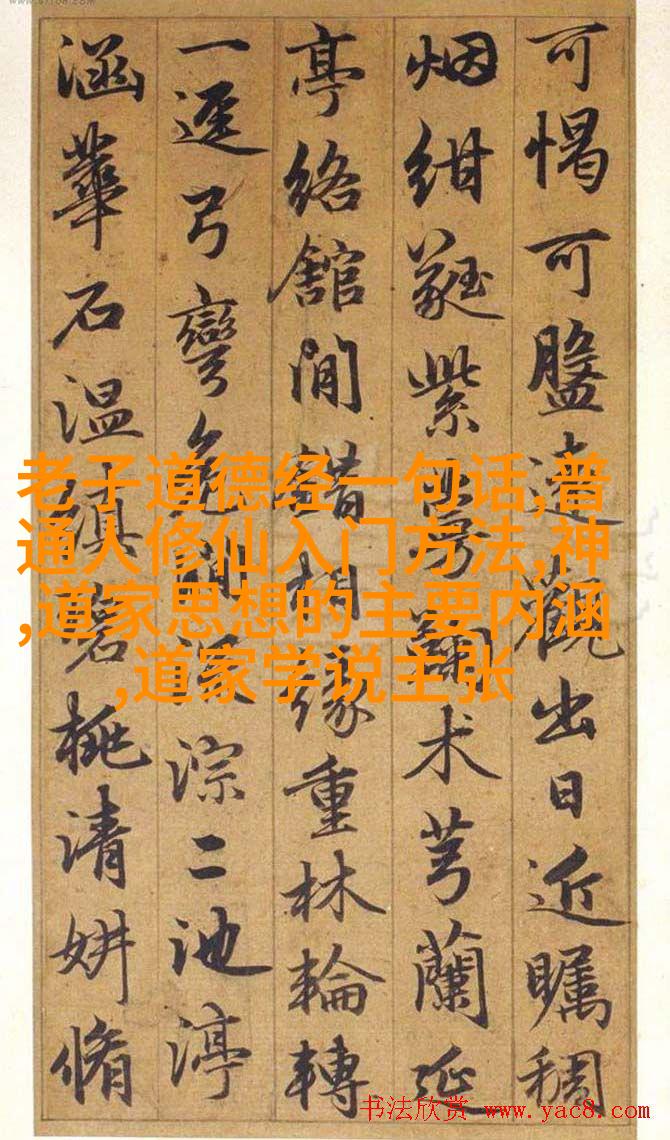 可惕可盬遠觀出日近矚稠
烟紺蕤紫芎蘭术芎蘭延
亭絡館間錯相緣重林輪轉
一逕弓彎淙二池渟
涵華石温碧桃清妍脩
老子道德经一句话,普
通人修仙入门方法,神
,道家思想的主要内涵
,道家学说主张
书法欣赏 www.yac8.com